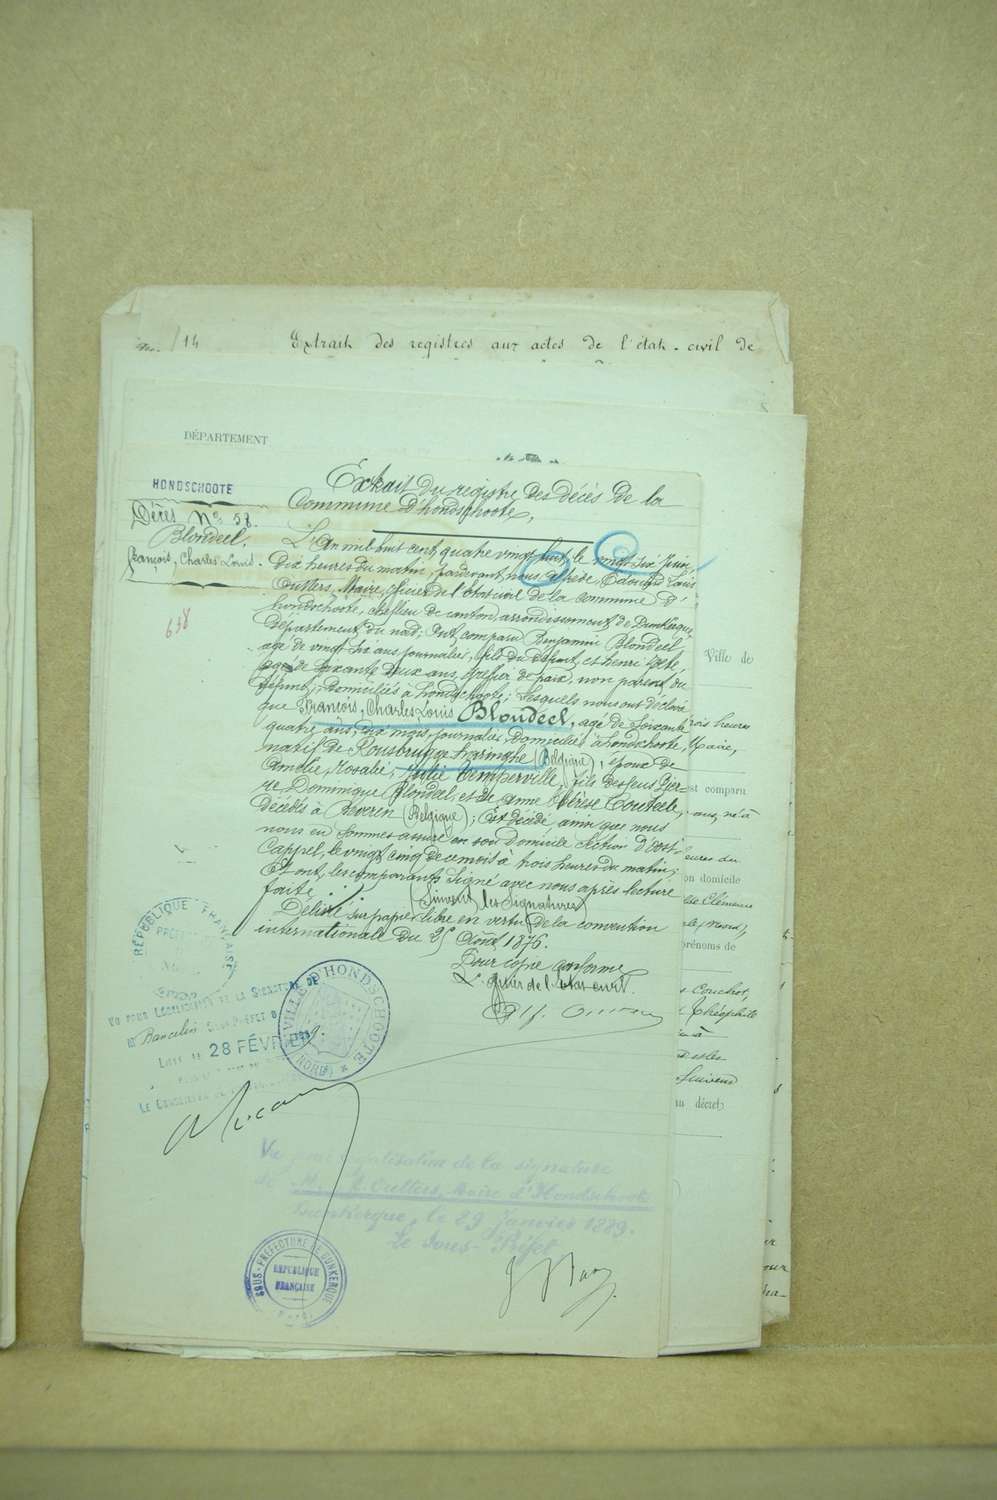 /14
Extrait des registres aux actes de l'état-civil de
DÉPARTEMENT
HONDSCHOOTE
Décès No 58.
Blondeel,
François, Charles Louis.
638
Extrait du registre des décès de la
Commune d'hondschoote,
L'An mil huit cent quatre vingt huit, le vingt six Juin,
dix heures du matin, pardevant nous Alfrède, Edouard Louis
Outters, Maire, officier de l'état civil de la commune d'
hondschoote, chef lieu de canton, arrondissement de Dunkerque,
département du nord; Ont comparu Benjamin Blondeel
agé de vingt six ans, journalier, fils du défunt, et henri
agé de soixante deux ans, greffier de paix, non parent du
défunt, domiciliés à hondschoote; lesquels nous ont déclaré
que François, Charles Louis Blondeel, agé de soixante
quatre ans, dix mois, journalier, domicilié à hondschoote,
natif de Rousbrugge haringhe (Belgique), époux de
Amélie, Rosalie, Julie Vemperville, fils des feus Pier=
re Dominique Blondeel, et de Anne Thérèse
décédés à Beveren (Belgique); Est décédé, ainsi que nous
nous en sommes assuré en son domicile Section d'ost
Cappel, le vingt cinq de ce mois à trois heures du matin;
Et ont, les comparants signé avec nous après lecture
faite. (Suivent les Signatures)
Délivré sur papier libre en vertu de la convention
internationale du 25 Août 1876.
Pour copie conforme
L'officier de l'état civil.
RÉPUBLIQUE FRANÇAISE
VILLE D'HONDSCHOOTE
(NORD)
Vu pour Légalisation de la Signature de
M Bancelin Sous-Préfet
Lille le 28 FÉVRIER 1889
Le Conseiller de
Vu pour légalisation de la signature
de M. A. Outters, Maire d'Hondschoote
Dunkerque, le 29 janvier 1889.
Le Sous-Préfet,
SOUS-PRÉFECTURE DE DUNKERQUE
RÉPUBLIQUE
FRANÇAISE
Ville de
trois heures
Maire,
est comparu
ans, né à
heures du
son domicile
Clémence
prénoms de
Couchot,
Théophile
Suivent
au décret